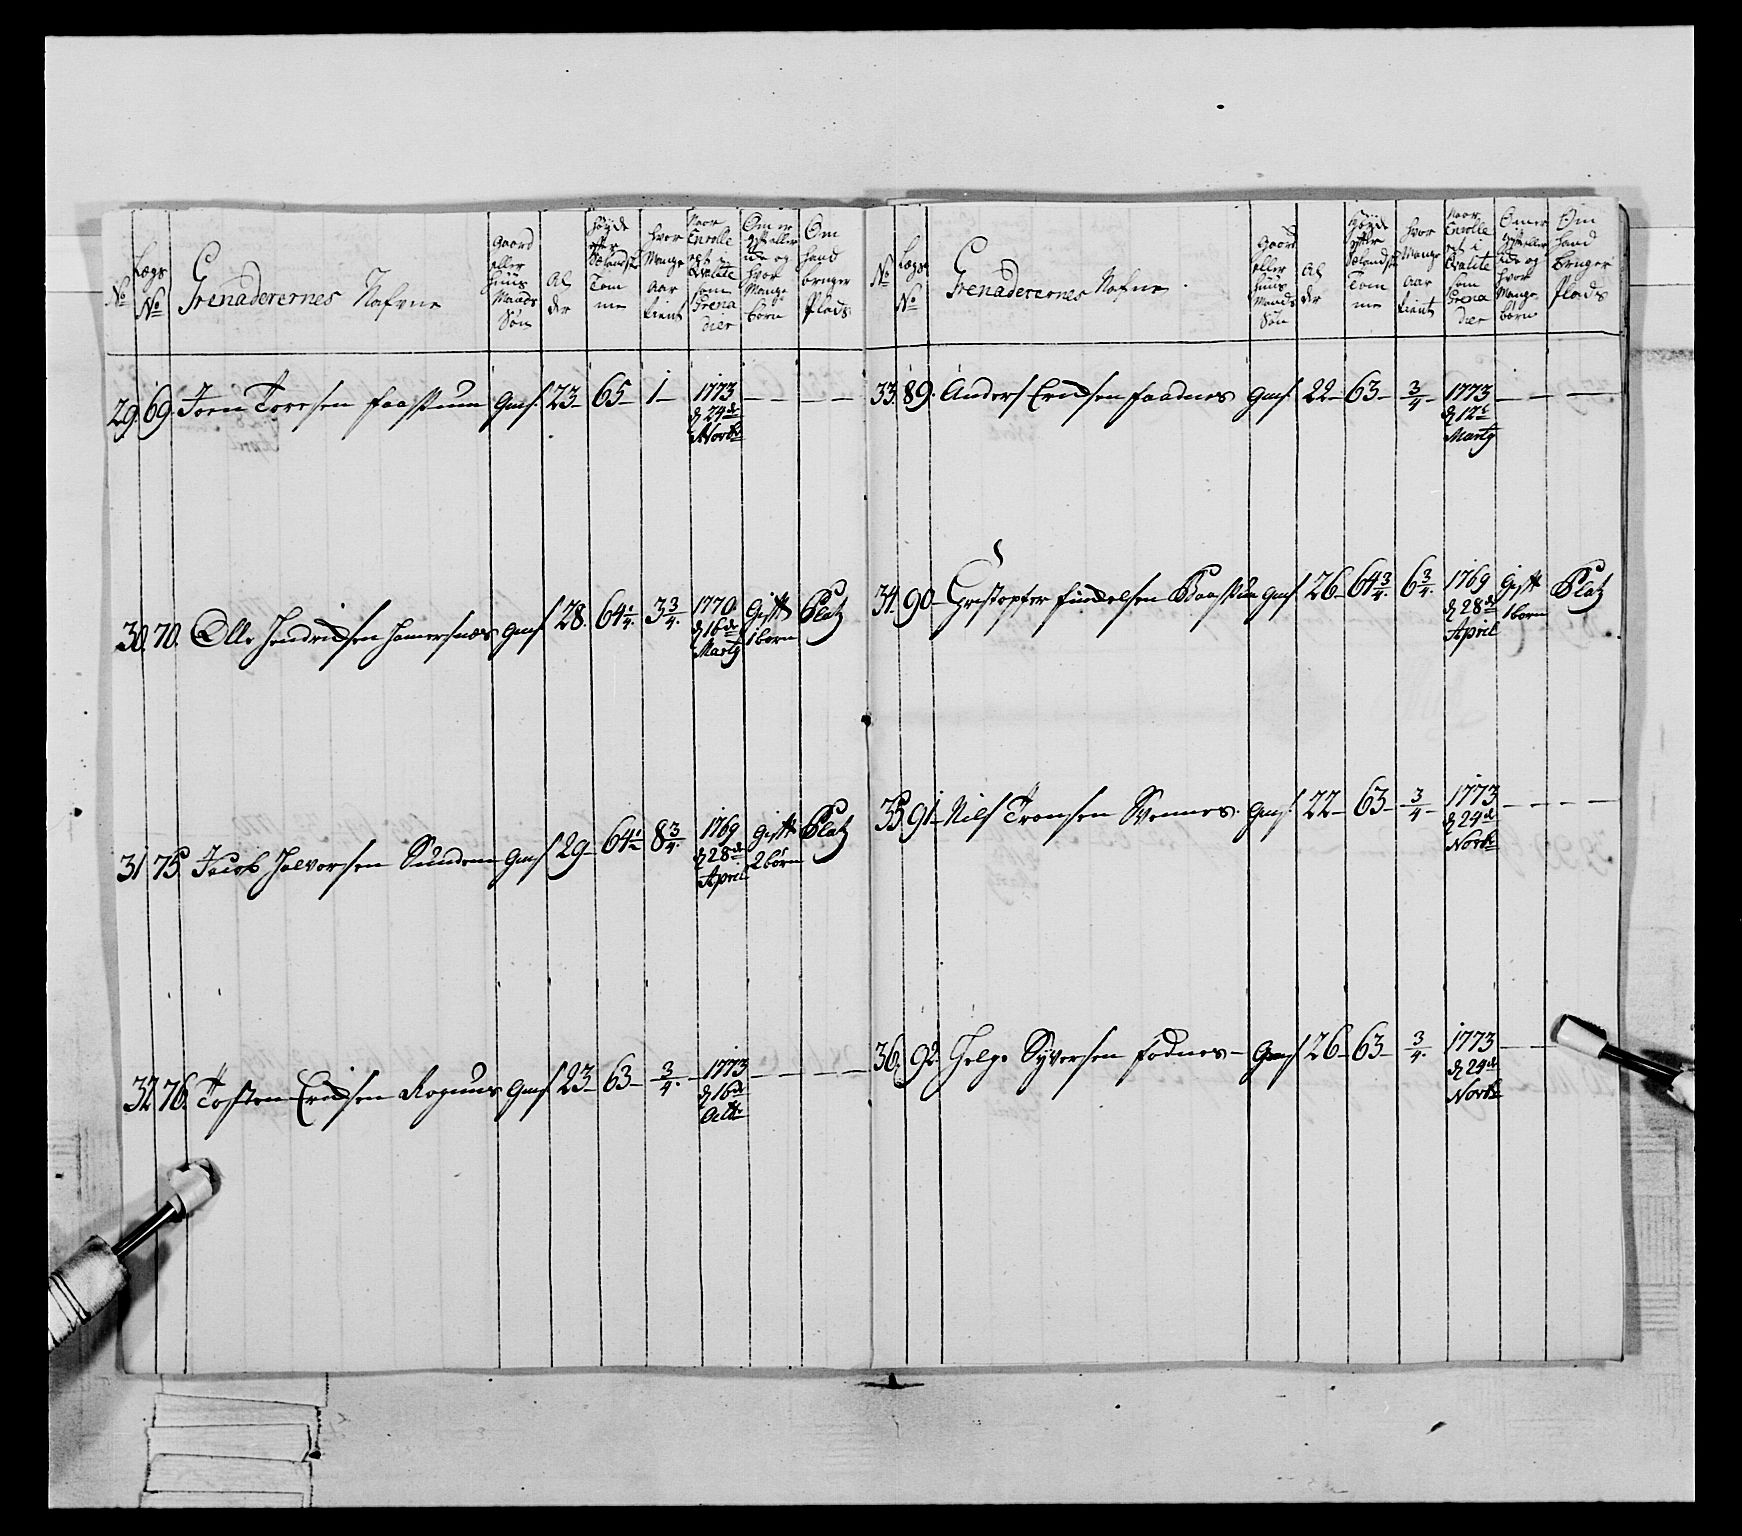 No
Lægs No
Grenaderernes Nafvne
Gaard eller Huus Mands Søn
Alder
Høyde efter Sælandske Tomme
Hvor Mange Aar tient
Naar Enrolleret i Qvalite som Grenadier
Om er gift eller ide og hvor Mange børn
Om hand bruger Plads
29. 69. Joen Toresen Gms. 23 65 1 1773 d 24de Novbr
30. 70. Olle Hendricksen Hamersnæs Gms 28. 64 1/4. 3 3/4. 1770 d 16de Marty Gift 1 børn Platz
31 75. Jacob Halvorsen Sunden Gms 29 64 8 3/4. 1769 d 28de April Gift 2 børn Platz
32 76. Tosten Ericksen Gms 23 63 3/4. 1773 d 16de Octbr
No
Lægs No
Grenaderernes Nafne.
Gaard eller Huus Mands Søn
Alder
Høyde efter Sælandske Tomme
Hvor Mange Aar tient
Naar Enrolleret i Qvalite som Grenadier
Om er gift eller ide og hvor Mange børn
Om hand bruger Plads
33. 89. Anders Ericksen Faadnes Gms. 22 63 3/4 1773 d 12te Marty
34. 90 Christopfer Gms. 26 64 3/4. 6 3/4. 1769 d 28de April Gift 1 børn Platz
35. 91 Nils Tronsen Svennes. Gms. 22 63 3/4 1773 d 24de Novbr
36. 92. Helge Syversen Fodnes Gms. 26 63 3/4. 1773 d 24de Novbr